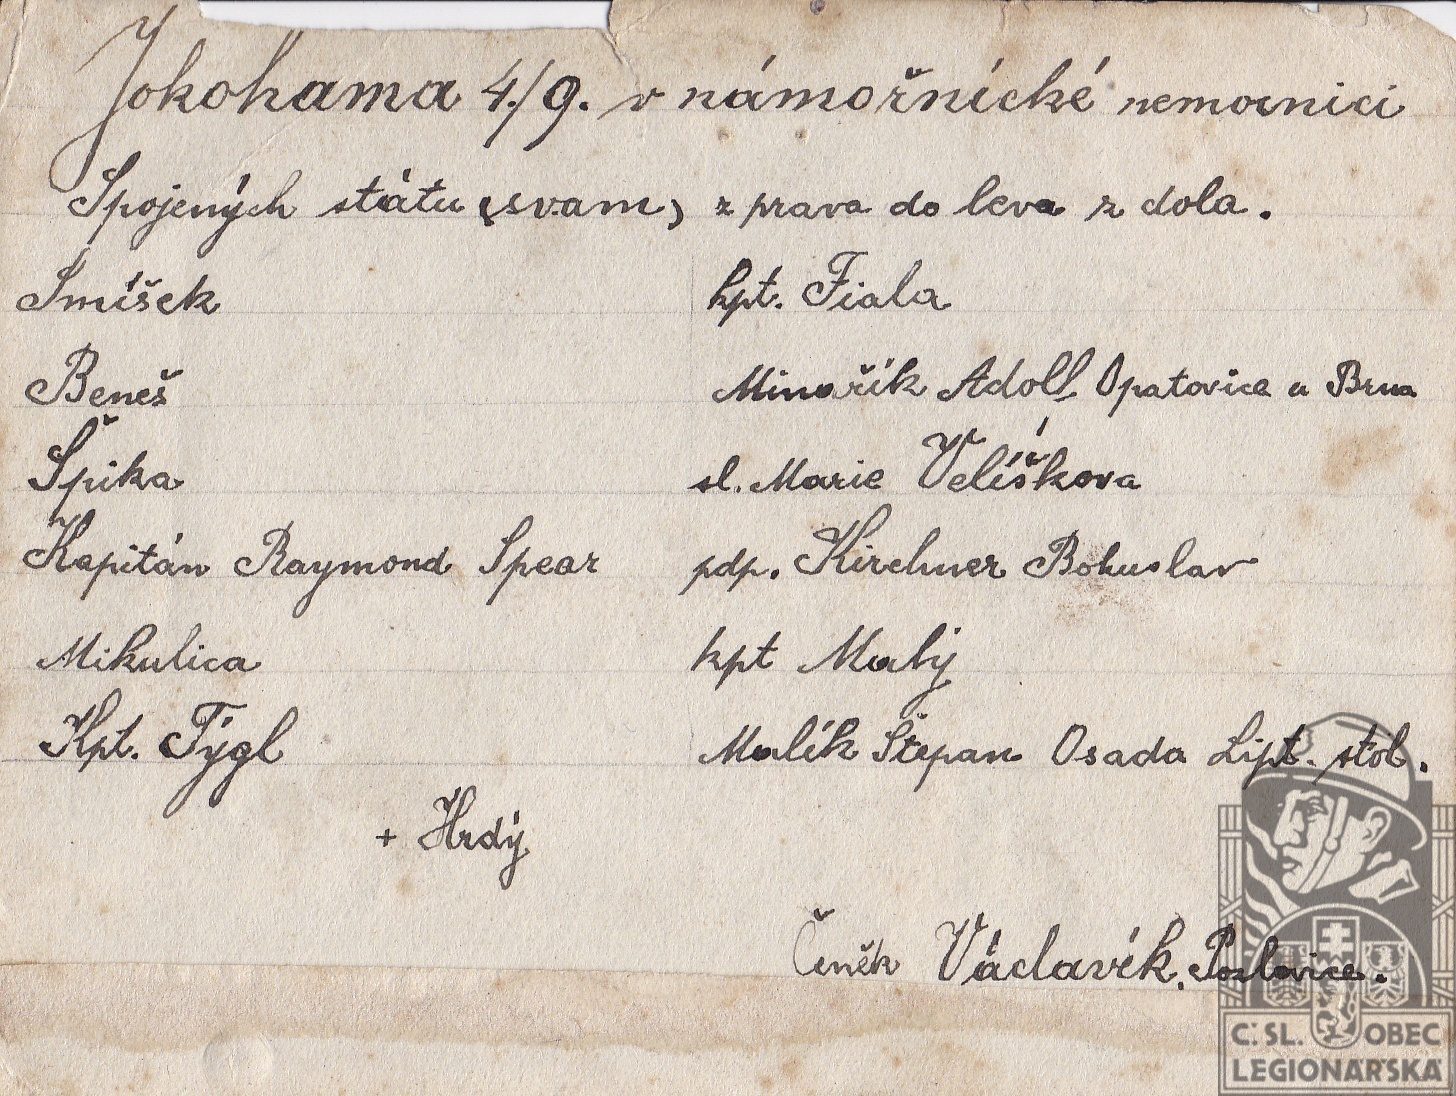 Jokohama 4./9. v námořnícké nemocnici
Spojených státu (svam) z prava do leva z dola.
Smíšek
Beneš
Špika
Kapitán Raymond Spear
Mikulica
Kpt. Týgl
+ Hrdý
kpt. Fiala
Minařík Adolf Opatovice u Brna
sl. Marie Velíškova
pdp. Kirchner Bohuslav
kpt Malý
Malík Štepan Osada Lipt. stol.
Čeněk Václavík. Pozlovice.
Č. SL. OBEC
LEGIONÁŘSKÁ